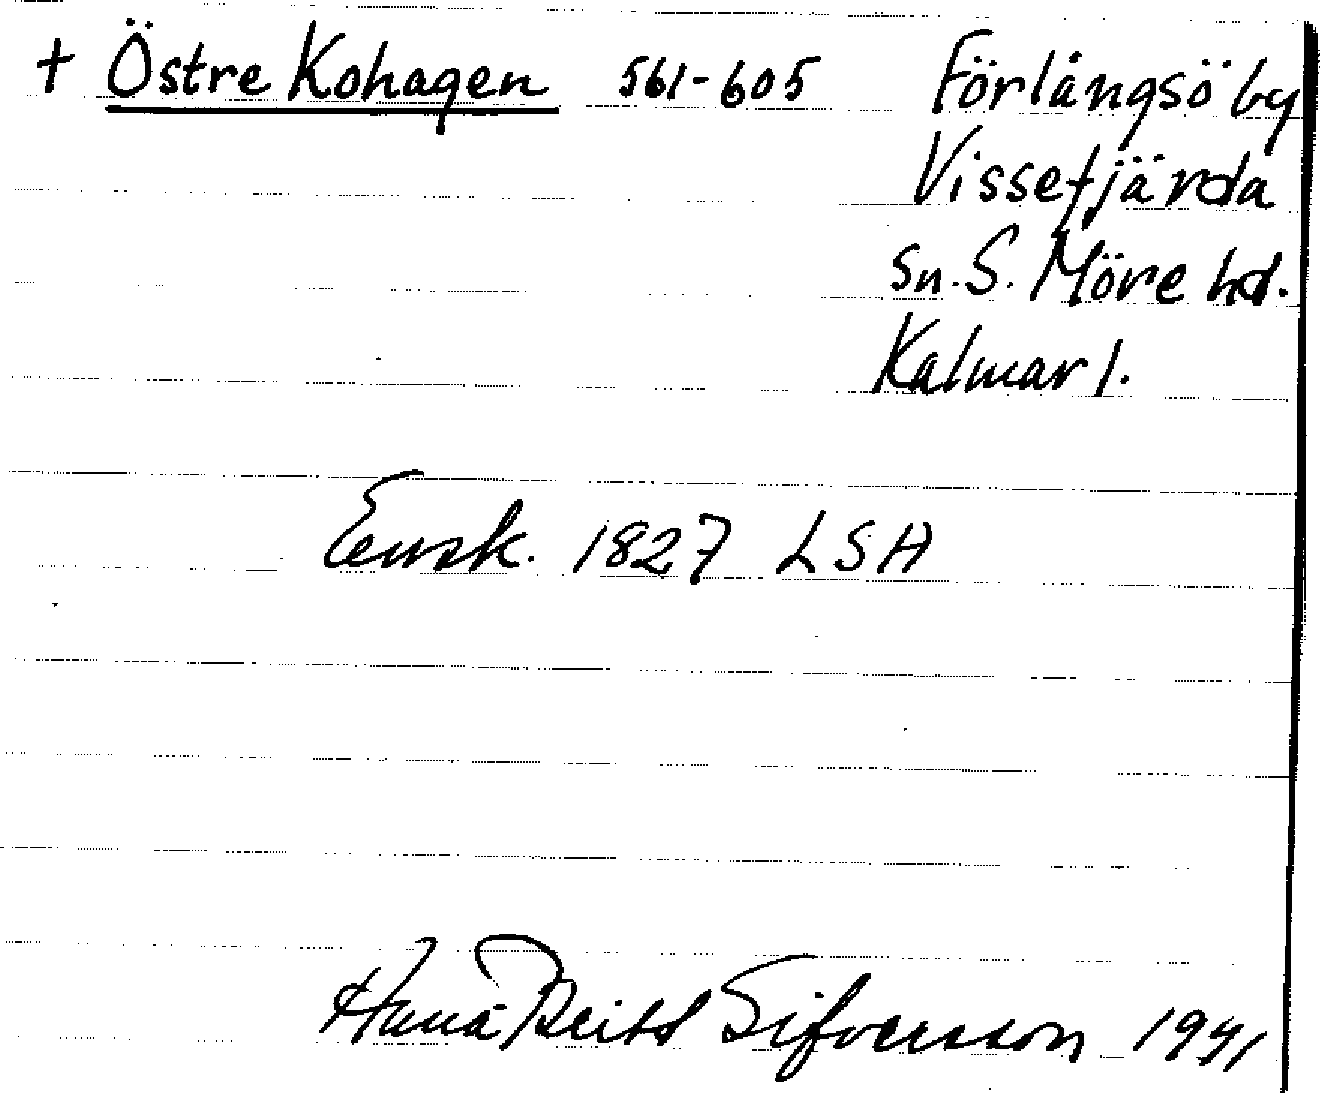 + Östre Kohagen 561-605 Förlångsö by
Vissefjärda
Sn. S. Möre hd.
Kalmar l.
Ensk. 1827 LSA
Sifversson 1991